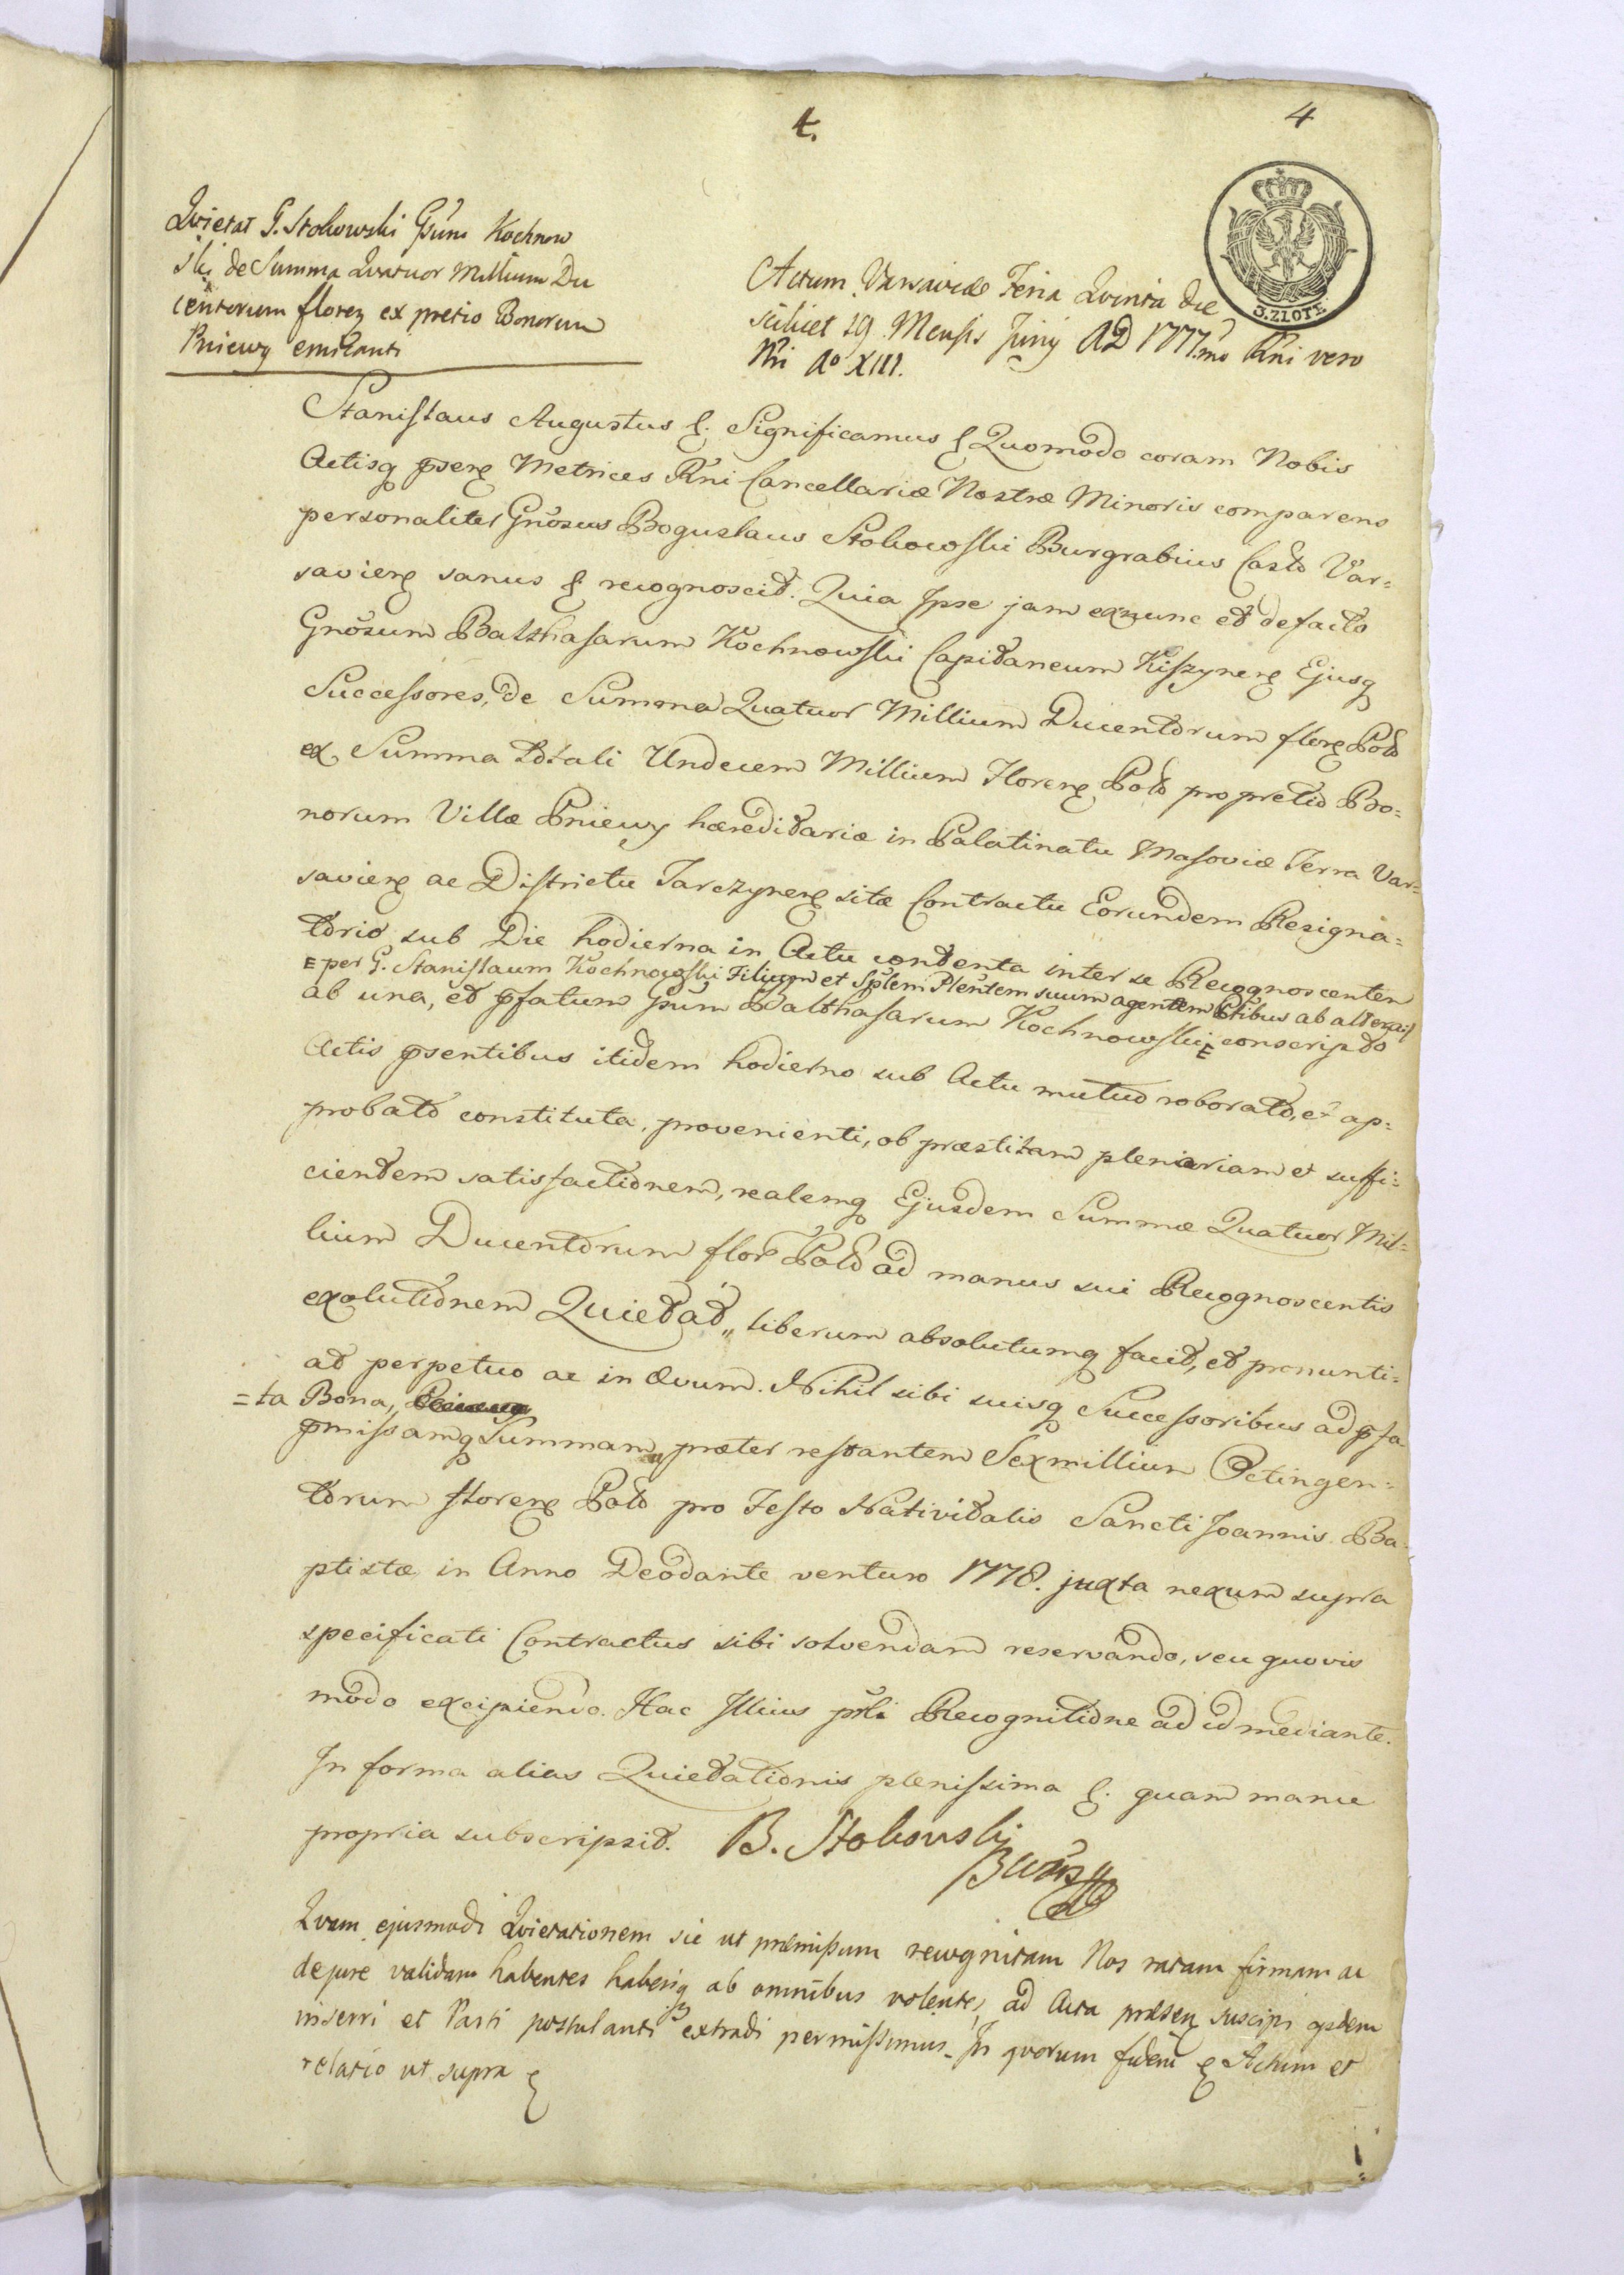 4.
4
3. ZŁOTE.
Qvietat G. Stokowski Gsum Kochnow
ski de Summa Qvatuor Millium Du
centorum floren ex pretio Bonorum
Pniewy emitanti
Actum Varsaviæ Feria Qvinta die
scilicet 19. Mensis Junij AD 1777.mo Rni vero
Nri Ao XIII.
Stanislaus Augustus &. Significamus & Quomodo coram Nobis
Actisq pseng Metrices Rni Cancellariæ Nostræ Minoris comparens
personaliter Gnosus Boguslaus Stokowski Burgrabius Castr Var=
savieng sanus & recognoscit. Quia Ipse jam exnunc et defacto
Gnosum Balthasarum Kochnowski Capitaneum Kiszyneng Ejusq
Successores, de Summa Quatuor Millium Ducentorum floreng Pol
ex Summa totali Undecem Millium Floreng Pol pro pretio Bo=
norum Villæ Pniewy hæreditariæ in Palatinatu Masoviæ Terra Var=
savieng ac Districtu Tarczyneng sitæ Contractu Eorundem Resigna=
torio sub Die hodierna in Actu contenta inter se Recognoscentem
E per G. Stanislaum Kochnowski Filium et Splem Plentem suum agentem Ptibus ab altera
ab una, et pfatum Gsum Balthasarum Kochnowski E conscripto
Actis psentibus itidem hodierno sub Actu mutuo roborato, et ap=
probato constituta, provenienti, ob præstitam plenariam et suffi=
cientem satisfactionem, realemq Ejusdem Summæ Quatuor Mil=
lium Ducentorum flore Pol ad manus sui Recognoscentis
exolutionem Quietat, liberum absolutumq facit, et pronunti=
at perpetuo ac in ævum. Nihil sibi suisq Successoribus ad pfa
=ta Bona,
pmissamq Summam, præter restantem Sexmillium Octingen=
torum floreng Pol pro Festo Nativitatis Sancti Joannis Ba=
ptistæ in Anno Deodante venturo 1778. juxta nexum supra
specificati Contractus sibi solvendam reservando, seu quovis
modo excipiendo. Hac Illius psli Recognitione ad id mediante.
In forma alias Quietationis plenissima &. quam manu
propria subscripsit. B. Stokowski
Qvam ejusmodi Qvietationem sic ut præmissum recognitam Nos ratam firmam ac
de jure validam habentes haberiq ab omnibus volentes, ad Acta præseng suscipi
inserri et Parti postulanti extradi permissimus. In qvorum fidem & Actum et
relatio ut supra &